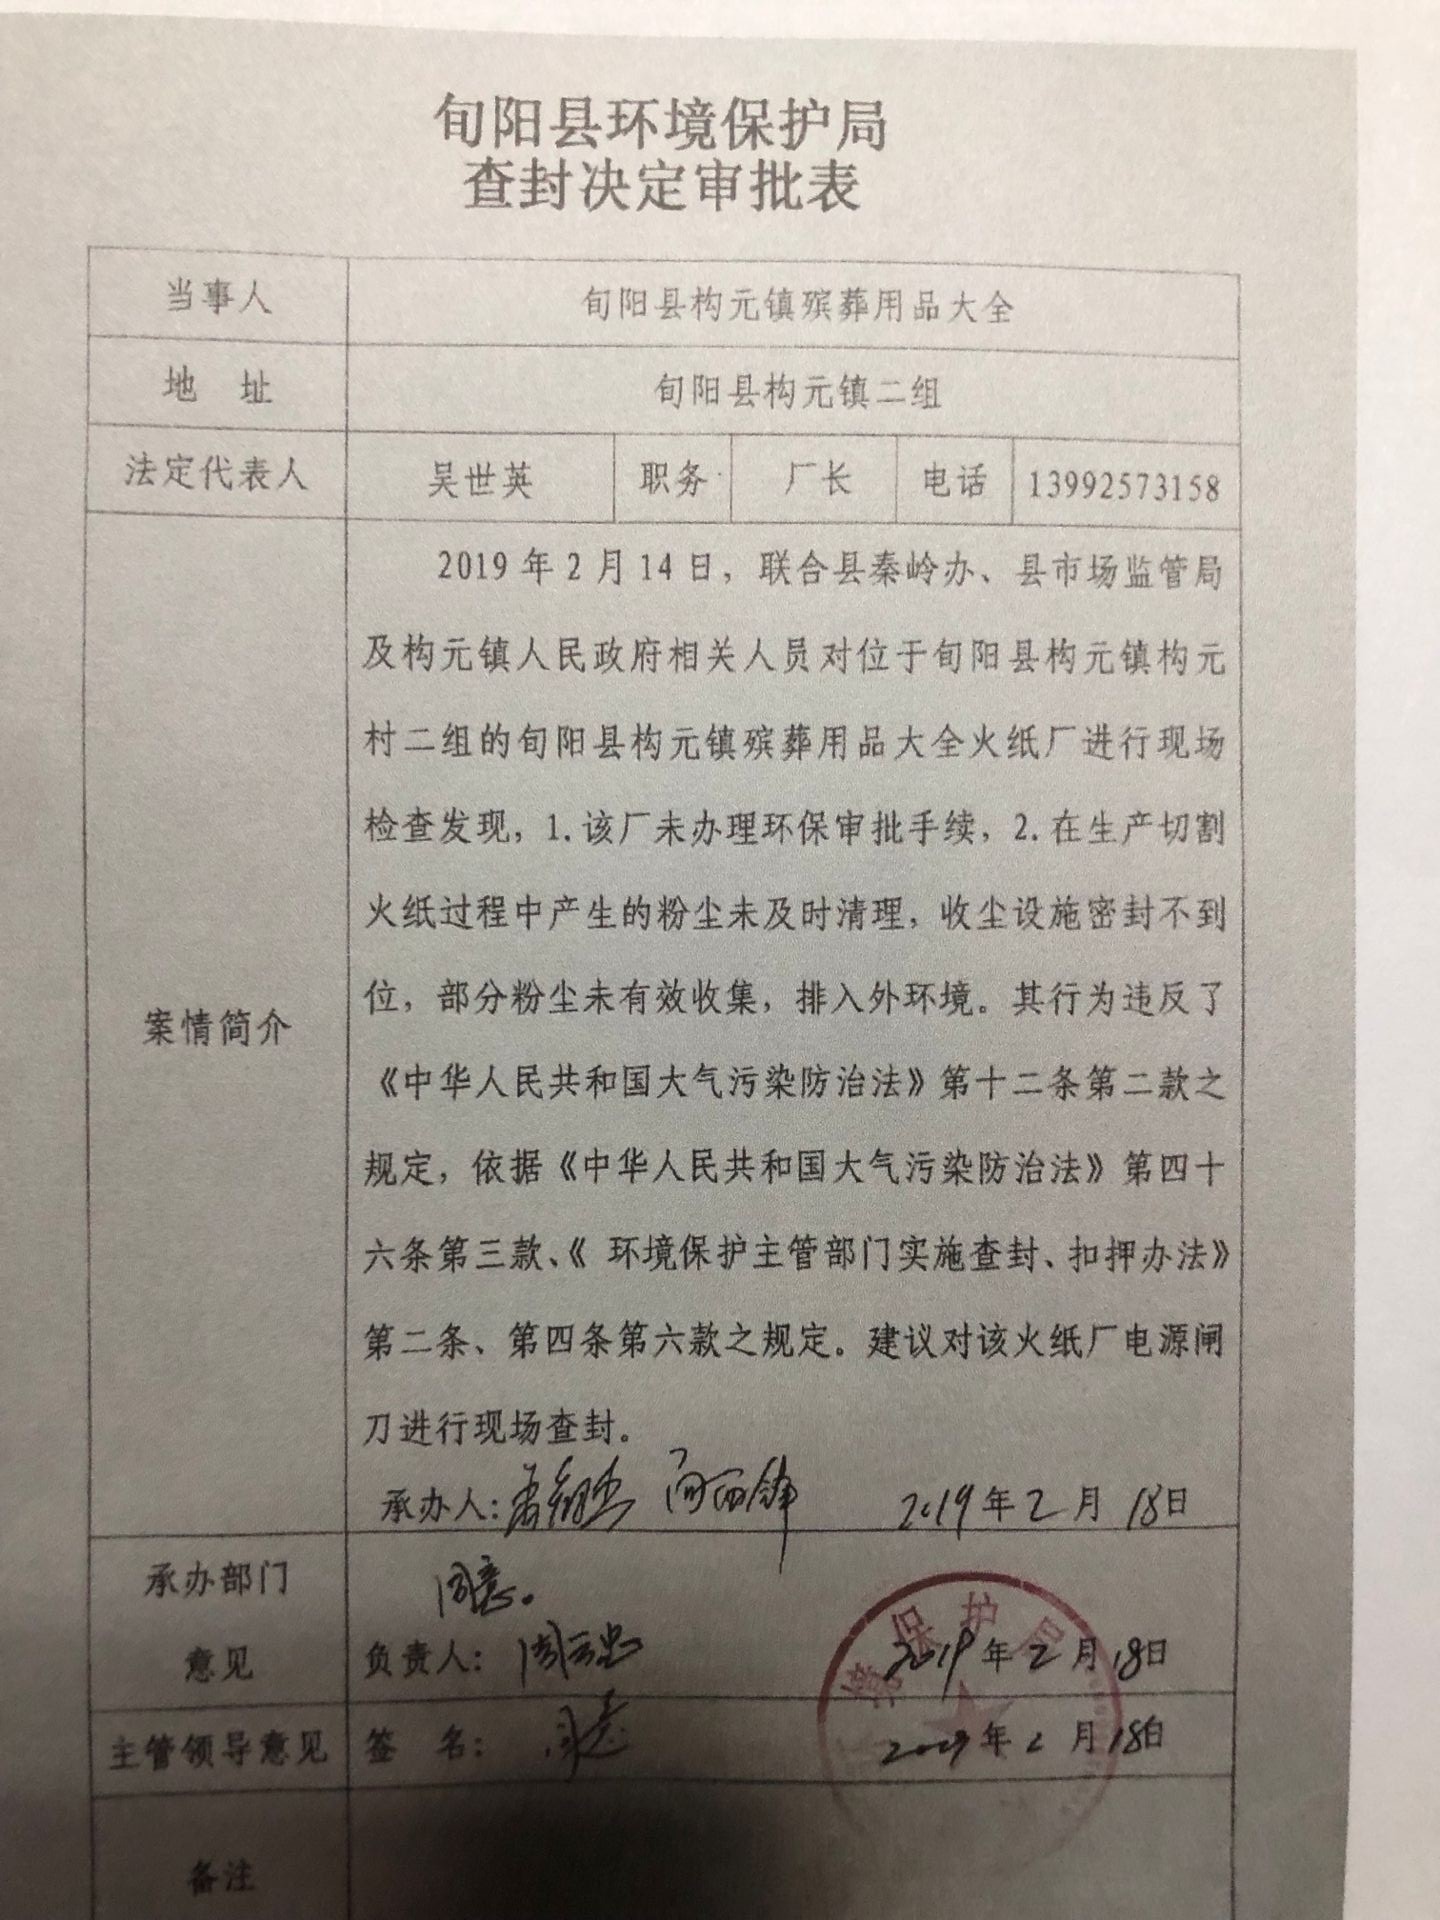 旬阳县环境保护局
查封决定审批表
当事人 旬阳县构元镇殡葬用品大全
地 址 旬阳县构元镇二组
法定代表人 吴世英 职务 厂长 电话 13992573158
案情简介
2019年2月14日，联合县秦岭办、县市场监管局
及构元镇人民政府相关人员对位于旬阳县构元镇构元
村二组的旬阳县构元镇殡葬用品大全火纸厂进行现场
检查发现，1.该厂未办理环保审批手续，2.在生产切割
火纸过程中产生的粉尘未及时清理，收尘设施密封不到
位，部分粉尘未有效收集，排入外环境。其行为违反了
《中华人民共和国大气污染防治法》第十二条第二款之
规定，依据《中华人民共和国大气污染防治法》第四十
六条第三款、《 环境保护主管部门实施查封、扣押办法》
第二条、第四条第六款之规定。建议对该火纸厂电源闸
刀进行现场查封。
承办人： 2019年2月18日
承办部门 同意。
意见 负责人： 2019年2月18日
主管领导意见 签 名： 同意 2019年2月18日
境保护局
备注